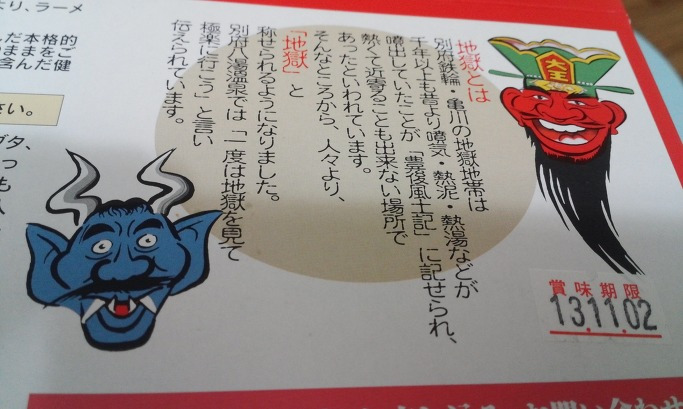 より、ラーメ
だ本格的
ままをご
含んだ健
さい。
ブタ、
っ
も
大王
地獄とは
別府鉄輪・亀川の地獄地帯は
千年以上も昔より噴気・熱泥・熱湯などが
噴出していたことが「豊後風土記」に記せられ、
熱くて近寄ることも出来ない場所で
あったといわれています。
そんなところから、人々より、
「地獄」と
称せられるようになりました。
別府八湯温泉では「一度は地獄を見て
極楽に行こう」と言い
伝えられています。
賞味期限
13.11.02
い合わせ